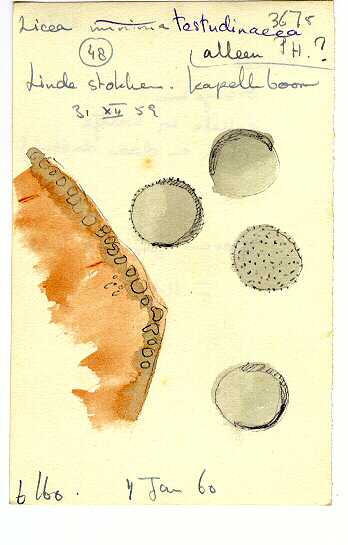 Licea minima testudinacea 3675
48 alleen H. ?
Linde stokken. Kapelleboom
31 XII 59
4 Jan 60